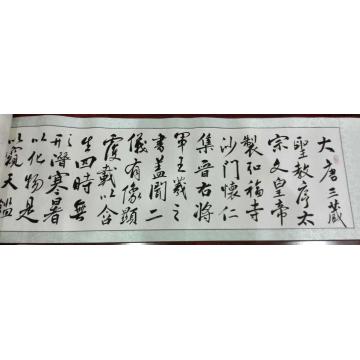 大唐三藏
聖教序太
宗文皇帝
製弘福寺
沙門懷仁
集晉右將
軍王羲之
書蓋聞二
儀有像顯
覆載以含
生四時無
形潛寒暑
以化物是
以窺天鑑